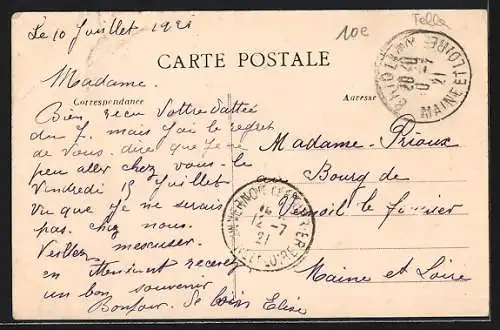 Le 10 Juillet 1921
10e
Tella
CARTE POSTALE
Correspondance
Adresse
MAINE ET LOIRE
Madame.
Bien recu Vottre
du 7. mais j'ai le regret
de Vous dire que je ne
peu aller chez vous le
Vendredi 15 Juillet
Vu que je ne serais
pas chez nous.
Veillez mescuser.
en attendant recevez
un bon souvenir
Bonjour. de loin Elise
Madame Prioux
au Bourg de
Vernoil le fourrier
Maine et Loire
VERNOIL LE FOURRIER
12-7
21